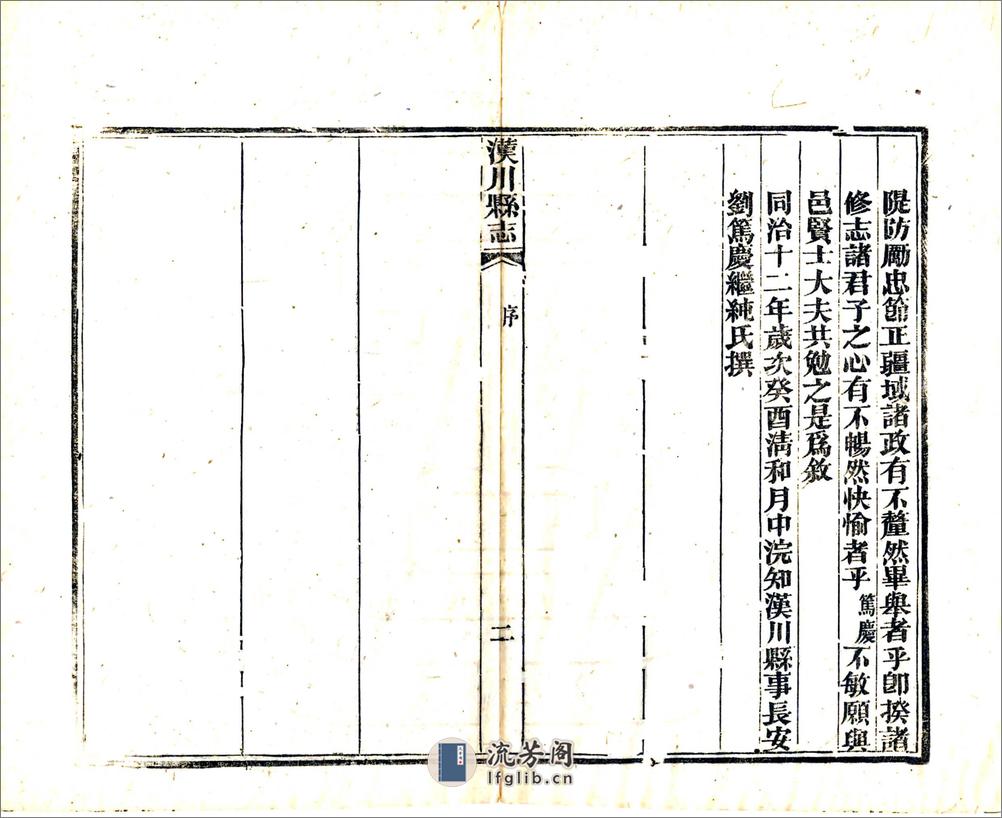 隄防勵忠節正疆域諸政有不釐然畢舉者乎卽揆諸
修志諸君子之心有不暢然快愉者乎篤慶不敏願與
邑賢士大夫共勉之是爲敘
同治十二年歲次癸酉淸和月中浣知漢川縣事長安
劉篤慶繼純氏撰
漢川縣志
序
二
流芳阁
lfglib.cn